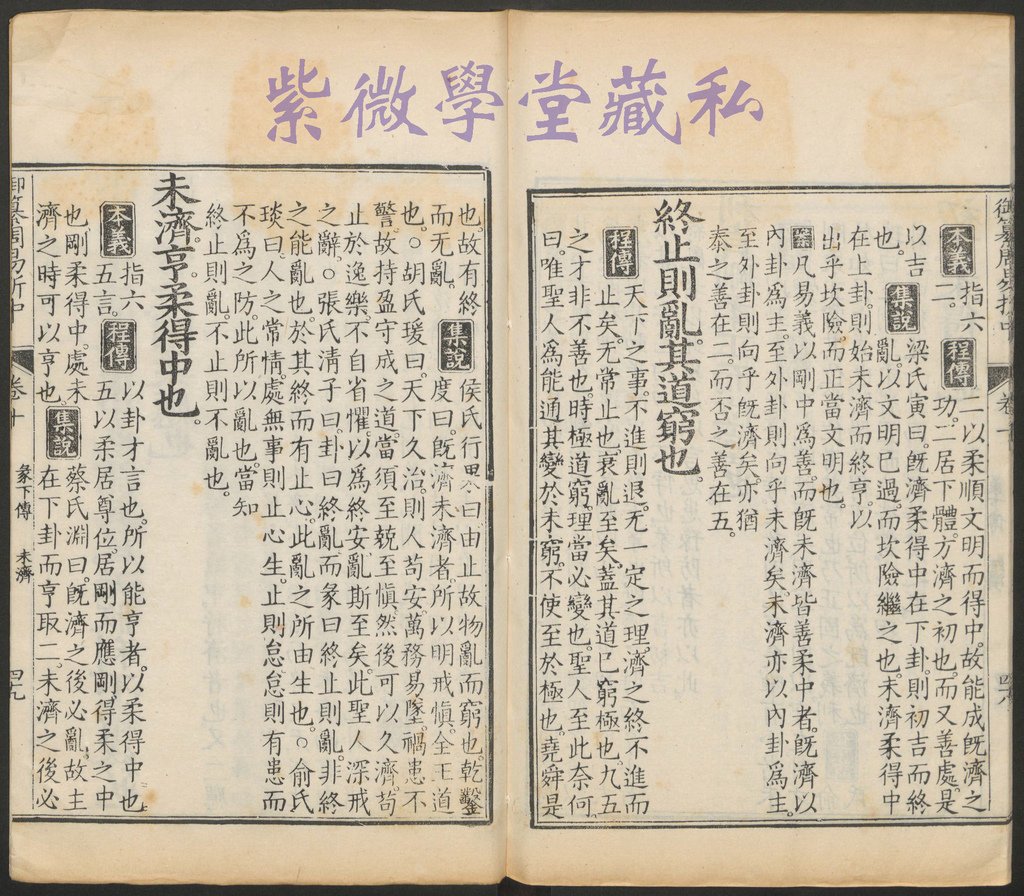 紫微學堂藏私
御纂周易折中
本義 指六 程傳 二以柔順文明而得中。故能成旣濟之
二。 功。二居下體。方濟之初也。而又善處。是
以吉 集說 梁氏寅曰。旣濟柔得中在下卦。則初吉而終
也。 亂。以文明已過。而坎險繼之也。未濟柔得中
在上卦。則始未濟而終亨。以
出乎坎險。而正當文明也。
案 凡易義以剛中爲善。而旣未濟皆善柔中者。旣濟以
內卦爲主。至外卦則向乎未濟矣。未濟亦以內卦爲主。
至外卦則向乎旣濟矣。亦猶
泰之善在二。而否之善在五。
終止則亂。其道窮也。
程傳 天下之事。不進則退。无一定之理。濟之終不進而
止矣。无常止也。衰亂至矣。蓋其道已窮極也。九五
之才非不善也。時極道窮。理當必變也。聖人至此奈何。
曰。唯聖人爲能通其變於未窮。不使至於極也。堯舜是
也。故有終 集說 侯氏行果曰。由止故物亂而窮也。乾鑿
而无亂。 度曰。旣濟未濟者。所以明戒愼。全王道
也。○胡氏瑗曰。天下久治。則人苟安。萬務易墜。禍患不
警。故持盈守成之道。當須至兢至愼。然後可以久濟。苟
止於逸樂。不自省懼。以爲終安。亂斯至矣。此聖人深戒
之辭。○張氏淸子曰。卦曰終亂。而彖曰終止則亂。非終
之能亂也。於其終而有止心。此亂之所由生也。○俞氏
琰曰。人之常情。處無事則止心生。止則怠。怠則有患而
不爲之防。此所以亂也。當知
終止則亂。不止則不亂也。
未濟。亨。柔得中也。
本義 指六 程傳 以卦才言也。所以能亨者。以柔得中也
五言。 五以柔居尊位。居剛而應剛。得柔之中
也。剛柔得中。處未 集說 蔡氏淵曰。旣濟之後必亂。故主
濟之時。可以亨也。 在下卦而亨取二。未濟之後必
御纂周易折中 卷十 彖下傳 未濟 四九